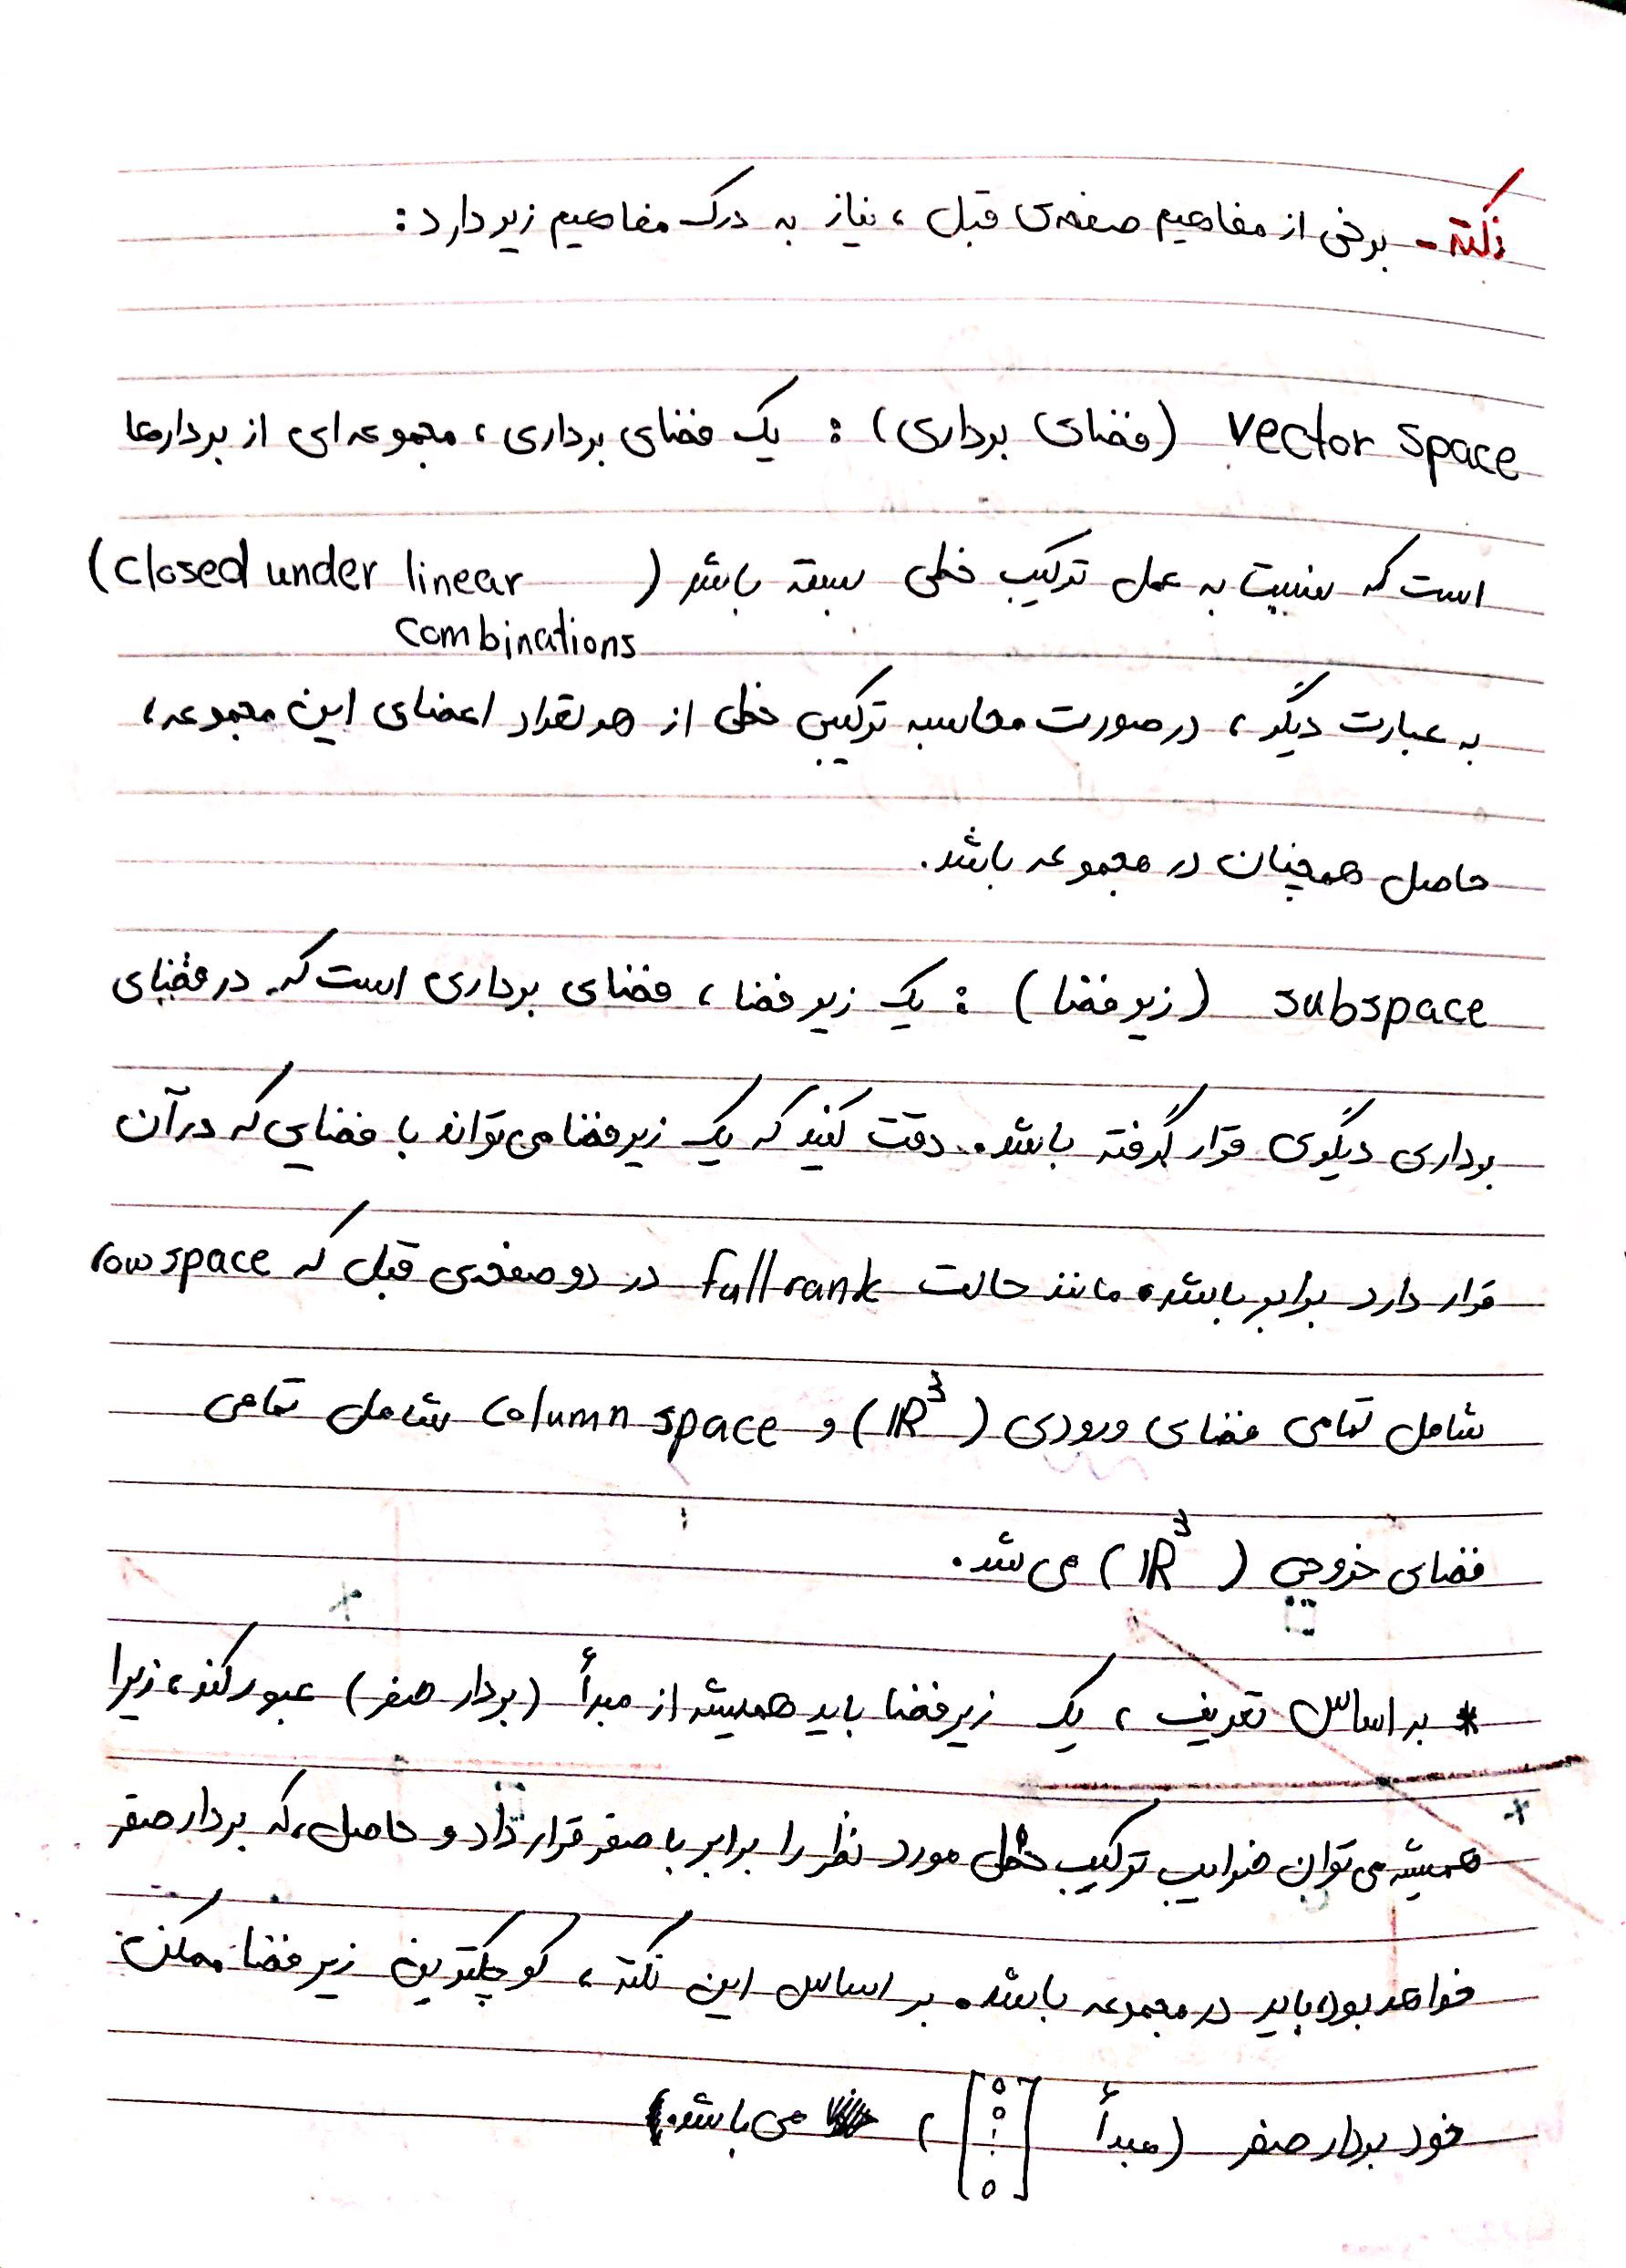 نکته - برخی از مفاهیم صفحه‌ی قبل ، نیاز به درک مفاهیم زیر دارد :
vector space (فضای برداری) : یک فضای برداری ، مجموعه ای از بردارها
است که نسبت به عمل ترکیب خطی بسته باشد (closed under linear
combinations)
به عبارت دیگر ، در صورت محاسبه ترکیبی خطی از هر تعداد اعضای این مجموعه ،
حاصل همچنان در مجموعه باشد.
subspace (زیر فضا) : یک زیر فضا ، فضای برداری است که در فضای
برداری دیگری قرار گرفته باشد. دقت کنید که یک زیرفضا می تواند با فضایی که در آن
قرار دارد برابر باشد، مانند حالت full rank در دو صفحه‌ی قبل که row space
شامل تمامی فضای ورودی (ℝ³) و column space شامل تمامی
فضای خروجی (ℝ³) می شد.
* بر اساس تعریف ، یک زیرفضا باید همیشه از مبدأ (بردار صفر) عبور کند ، زیرا
همیشه می توان ضرایب ترکیب خطی مورد نظر را برابر با صفر قرار داد و حاصل، که بردار صفر
خواهد بود، باید در مجموعه باشد. بر اساس این نکته ، کوچکترین زیرفضا ممکن
خود بردار صفر (مبدأ [0 0 ⋮ 0]) می باشد.